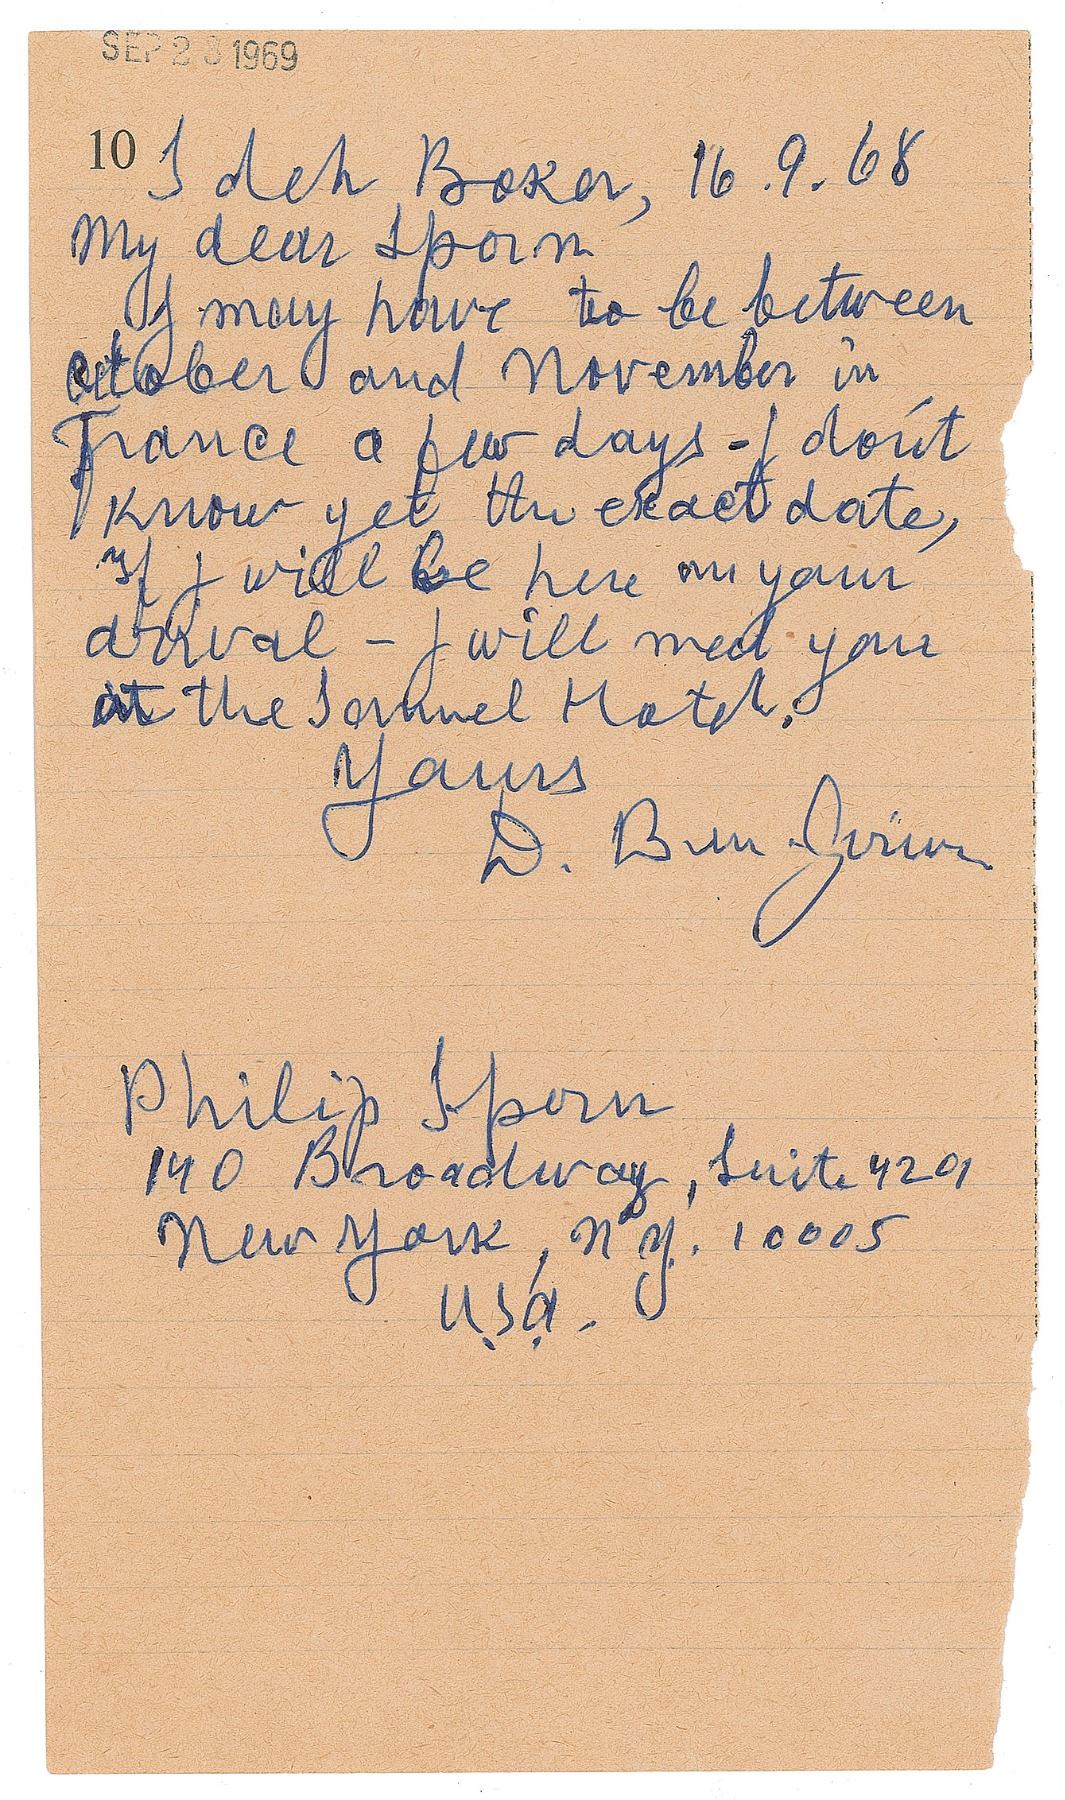 SEP 23 1969
10 Sdeh Boker, 16.9.68
My dear Sporn
I may have to be between
october and November in
France a few days - I don't
know yet the exact date,
If I will be here on your
arrival - I will meet you
at the Samuel Hotel.
Yours
D. Ben-Gurion
Philip Sporn
140 Broadway, Suite 4201
New York, N.Y. 10005
U.S.A.